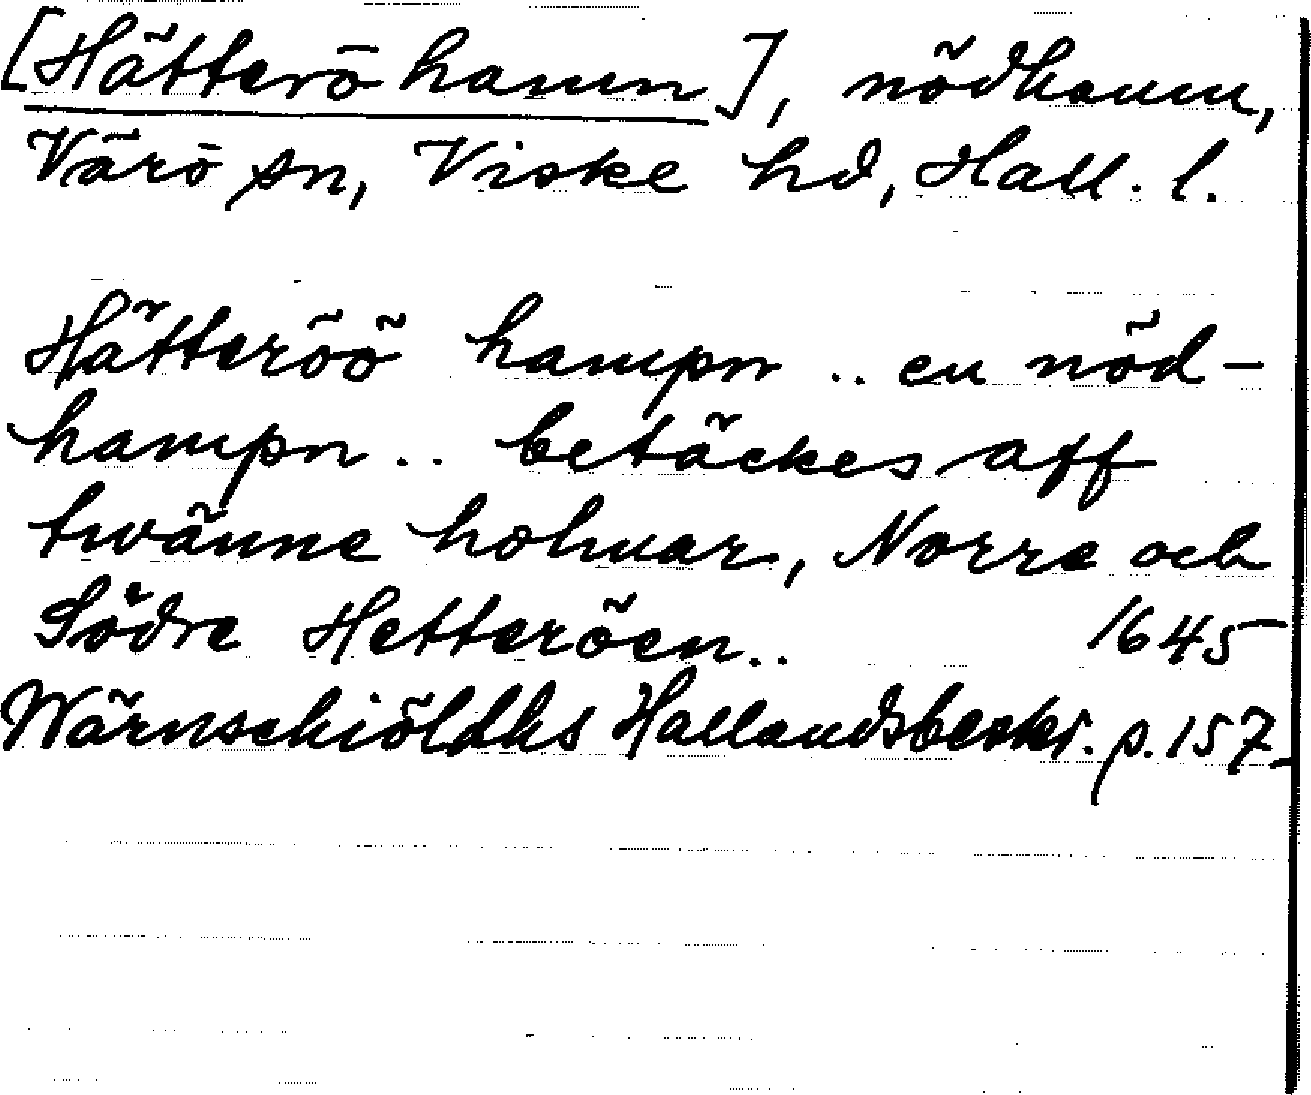 [Hätterö hamn], nödhamn,
Värö sn, Viske hd, Hall. l.
Hätteröö hampn .. en nöd-
hampn .. betäckes aff
twänne holmar, Norre och
Södre Hetteröen.. 1645
Wärnschiöldhs Hallandsbeskr. p. 157